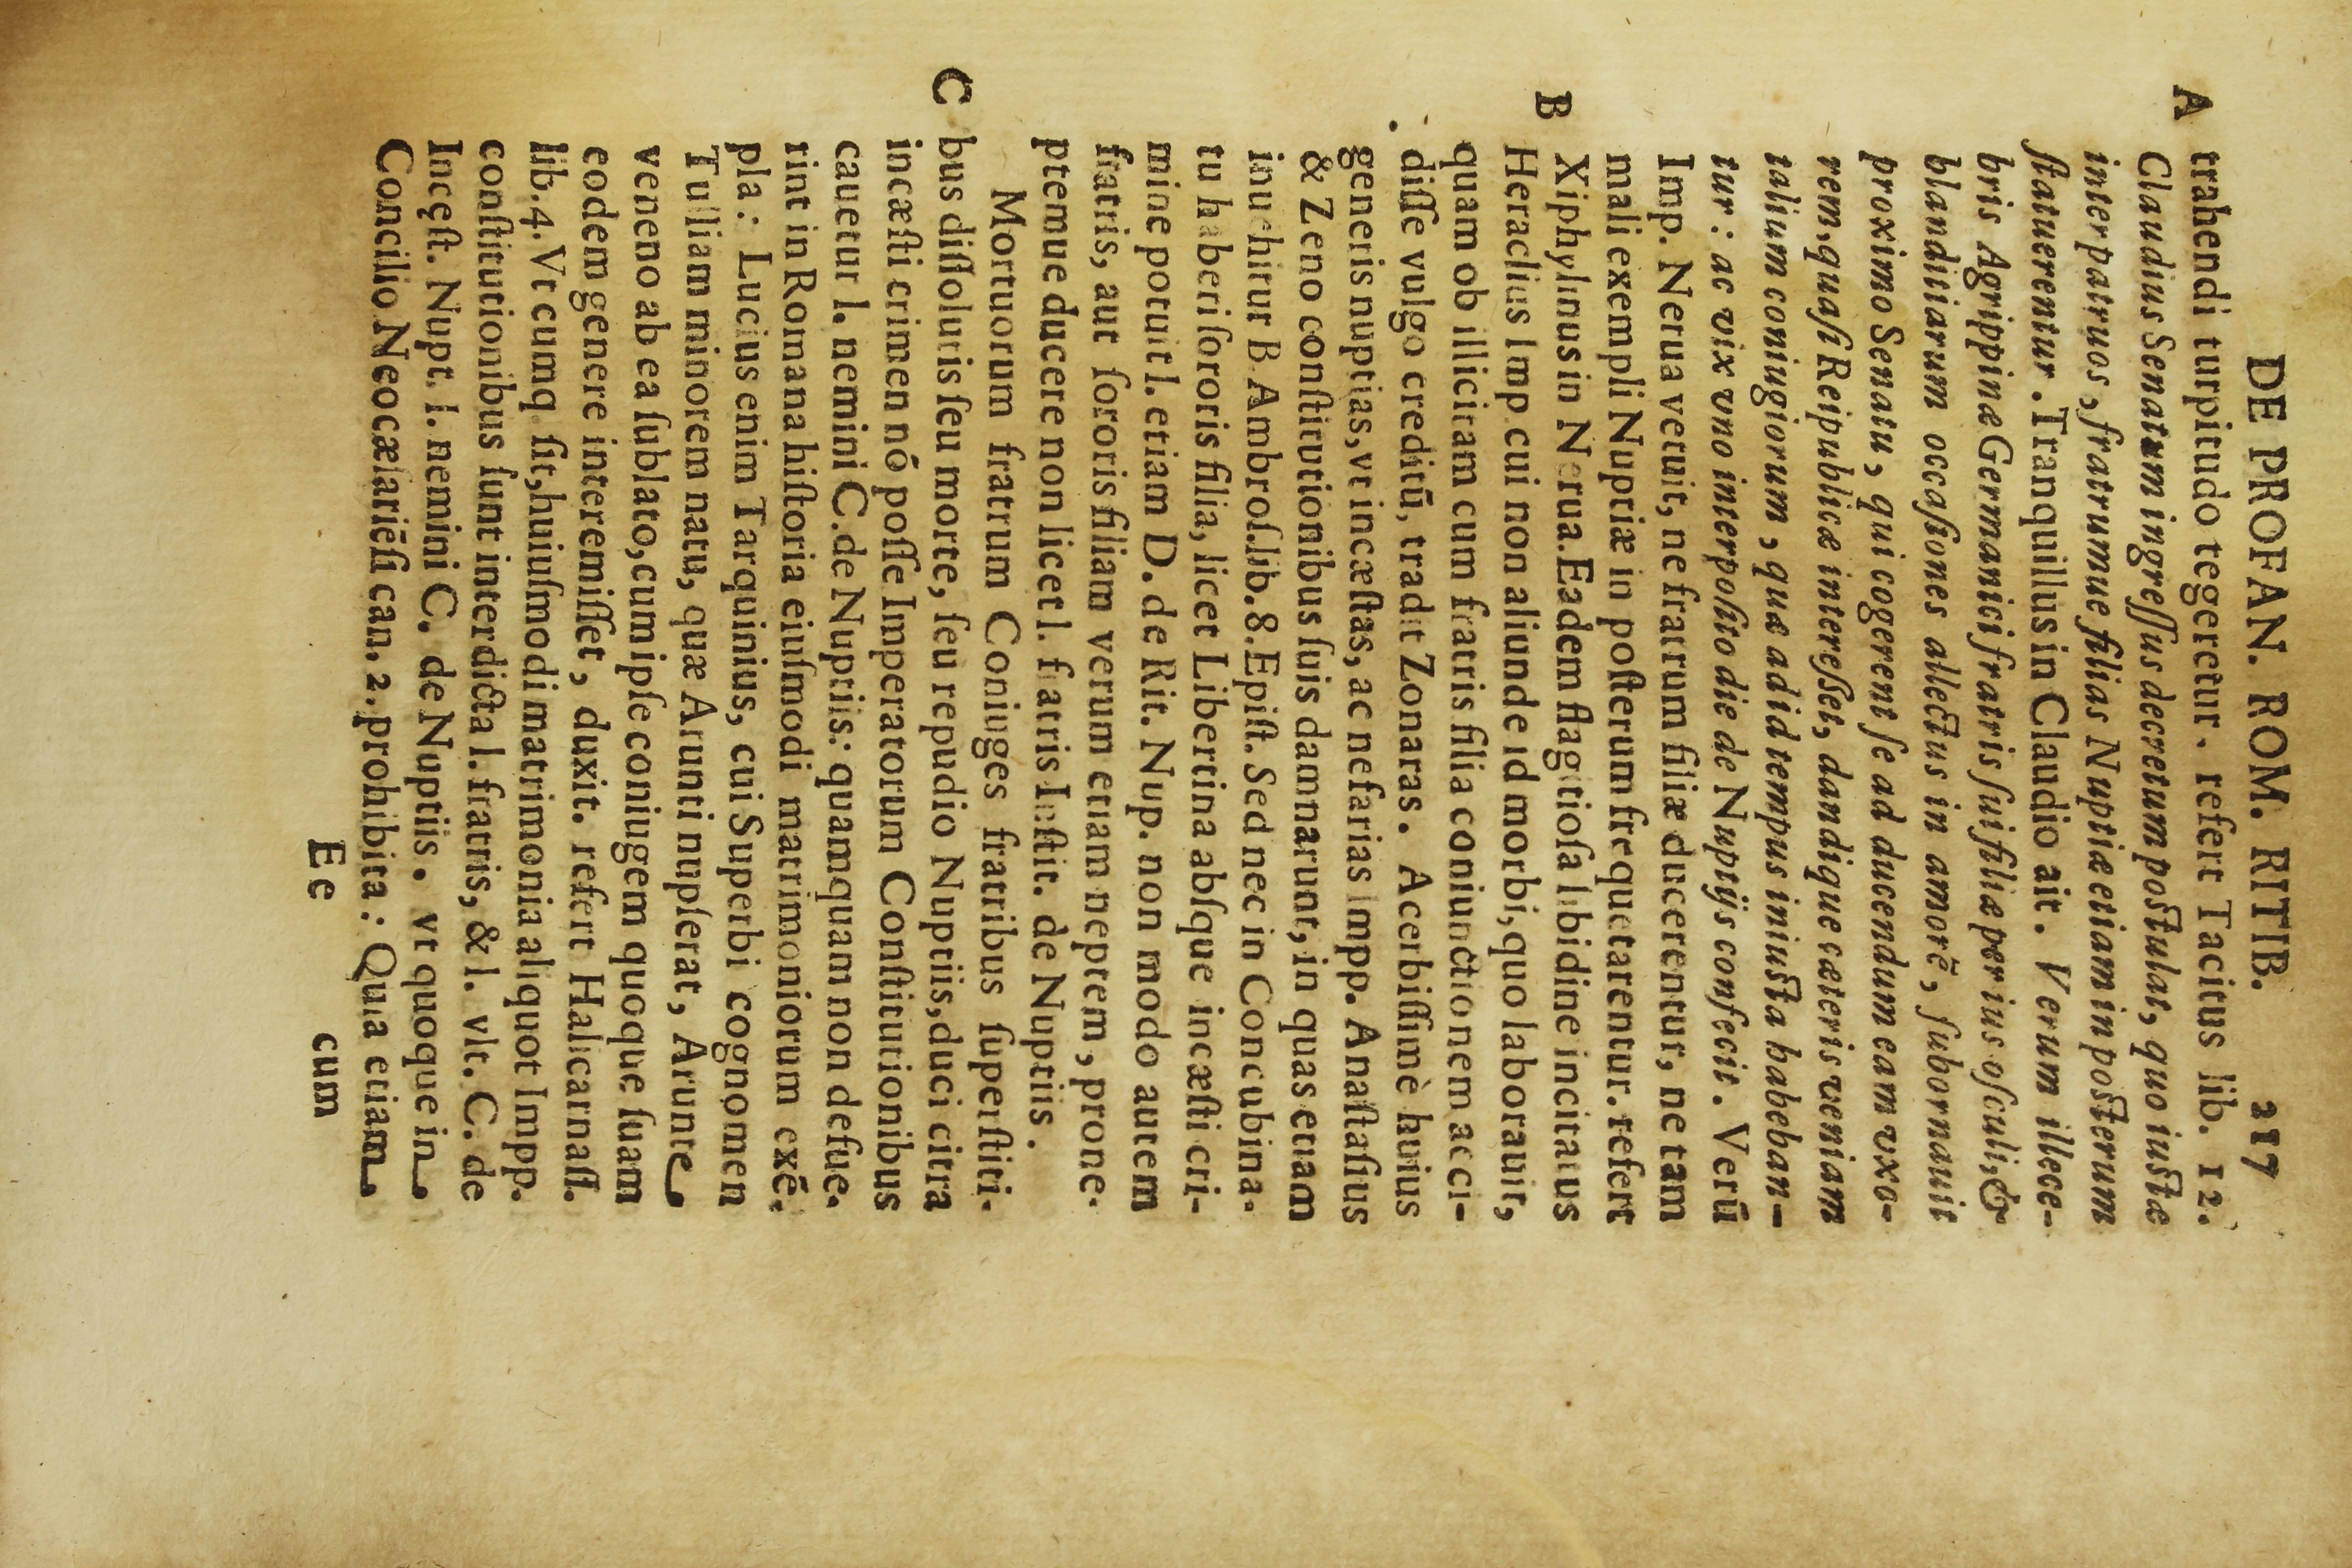 DE PROFAN. ROM. RITIB. 217
A trahendi turpitudo tegeretur. refert Tacitus lib. 12.
Claudius Senatum ingreſſus decretum poſtulat, quo iuſtæ
inter patruos, fratrumue filias Nuptiæ etiam in poſterum
ſtatuerentur. Tranquillus in Claudio ait. Verum illece-
bris Agrippinæ Germanici fratris ſui filiæ per ius oſculi, &
blanditiarum occaſiones allectus in amorē, ſubornauit
proximo Senatu, qui cogerent ſe ad ducendum eam vxo-
rem, quaſi Reipublicæ intereſſet, dandique cæteris veniam
talium coniugiorum, quæ ad id tempus iniuſta habeban-
tur: ac vix vno interpoſito die de Nuptijs confecit. Verū
Imp. Nerua vetuit, ne fratrum filiæ ducerentur, ne tam
mali exempli Nuptiæ in poſterum frequetarentur. refert
B Xiphylinus in Nerua. Eadem flagitioſa libidine incitatus
Heraclius Imp cui non aliunde id morbi, quo laborauit,
quam ob illicitam cum fratris filia coniunctionem acci-
diſſe vulgo creditū, tradit Zonaras. Acerbiſſimè huius
generis nuptias, vt incæſtas, ac nefarias impp. Anaſtaſius
& Zeno conſtitutionibus ſuis damnarunt, in quas etiam
inuehitur B. Ambroſ. lib. 8. Epiſt. Sed nec in Concubina-
tu haberi ſororis filia, licet Libertina abſque incæſti cri-
mine potuit l. etiam D. de Rit. Nup. non modo autem
fratris, aut ſororis filiam verum etiam neptem, prone-
ptemue ducere non licet l. fratris Inſtit. de Nuptiis.
Mortuorum fratrum Coniuges fratribus ſuperſtiti-
C bus diſſolutis ſeu morte, ſeu repudio Nuptiis, duci citra
incæſti crimen nō poſſe Imperatorum Conſtitutionibus
cauetur l. nemini C. de Nuptiis: quamquam non defue-
rint in Romana hiſtoria eiuſmodi matrimoniorum exē-
pla: Lucius enim Tarquinius, cui Superbi cognomen
Tulliam minorem natu, quæ Arunti nupſerat, Arunte
veneno ab ea ſublato, cum ipſe coniugem quoque ſuam
eodem genere interemiſſet, duxit. refert Halicarnaſſ.
lib. 4. Vt cumq ſit, huiuſmodi matrimonia aliquot Impp.
conſtitutionibus ſunt interdicta l. fratris, & l. vlt. C. de
Inceſt. Nupt. l. nemini C. de Nuptiis. vt quoque in
Concilio Neocælariēſi can. 2. prohibita: Quia etiam
Ee cum